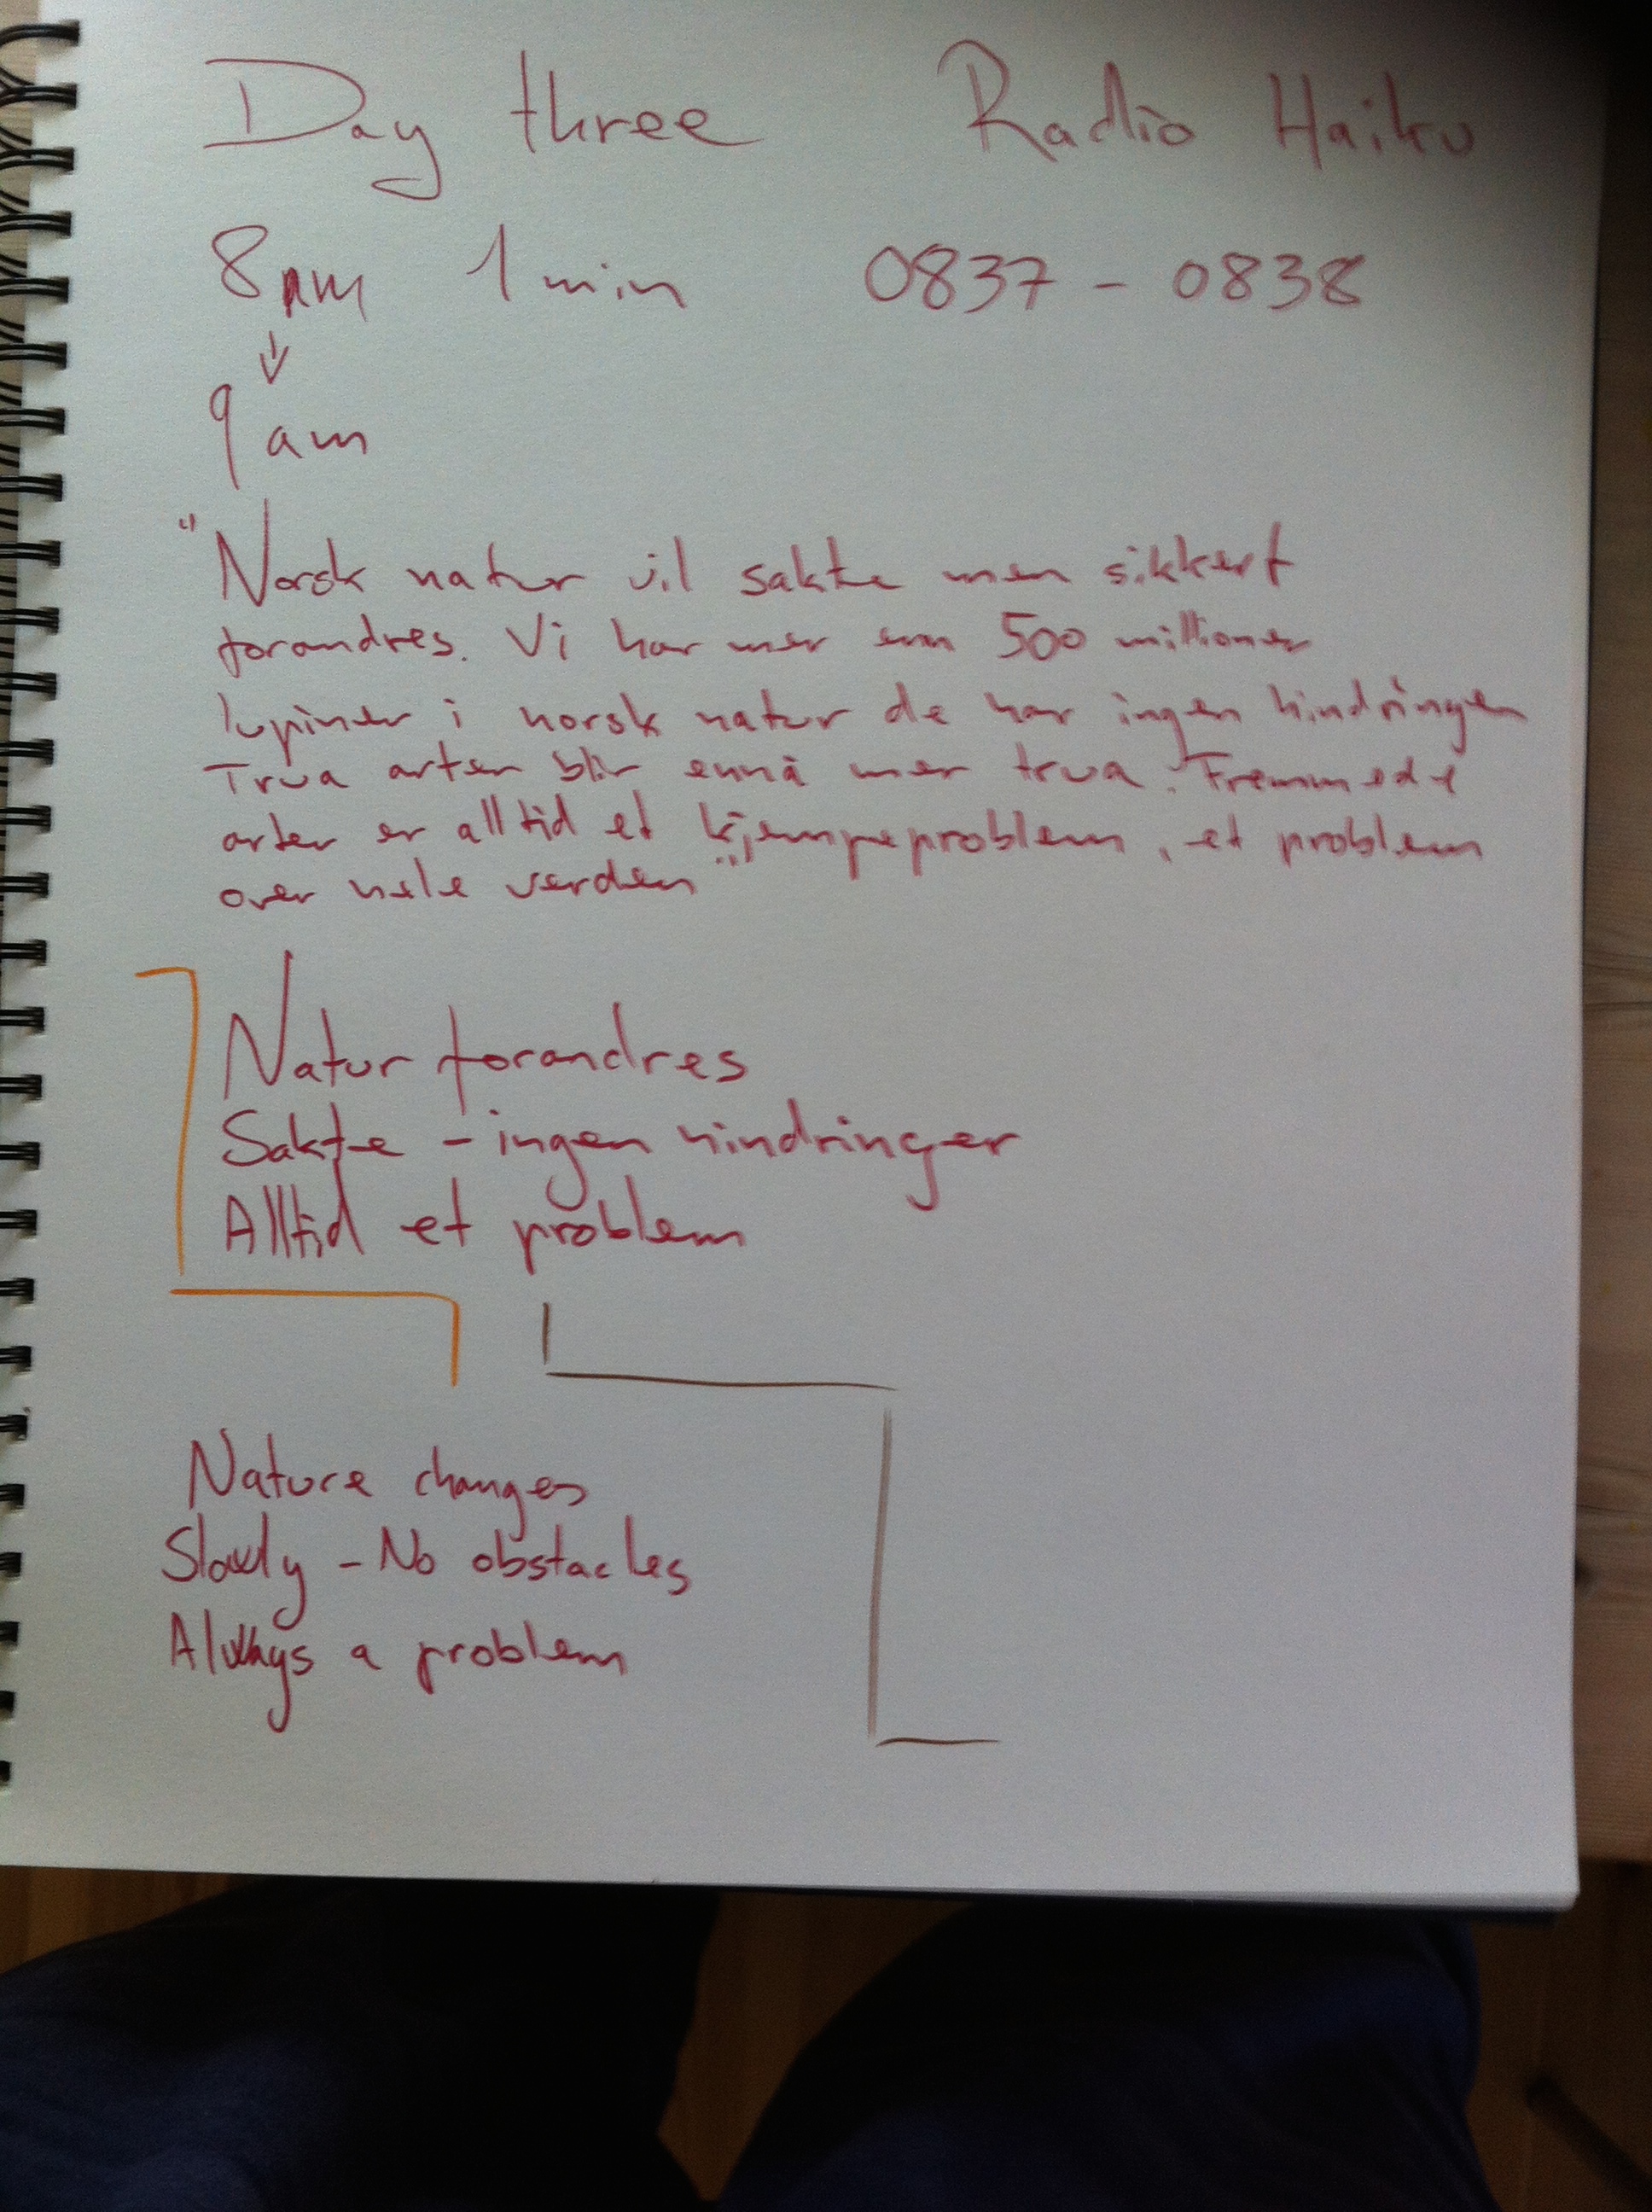 Day three Radio Haiku
8am 1 min 0837 - 0838
↓
9 am
"Norsk natur vil sakte men sikkert
forandres. Vi har mer enn 500 millioner
lupiner i norsk natur de har ingen hindringer
Trua arter blir ennå mer trua. Fremmede
arter er alltid et kjempeproblem, et problem
over hele verden"
Natur forandres
Sakte - ingen hindringer
Alltid et problem
Nature changes
Slowly - No obstacles
Always a problem